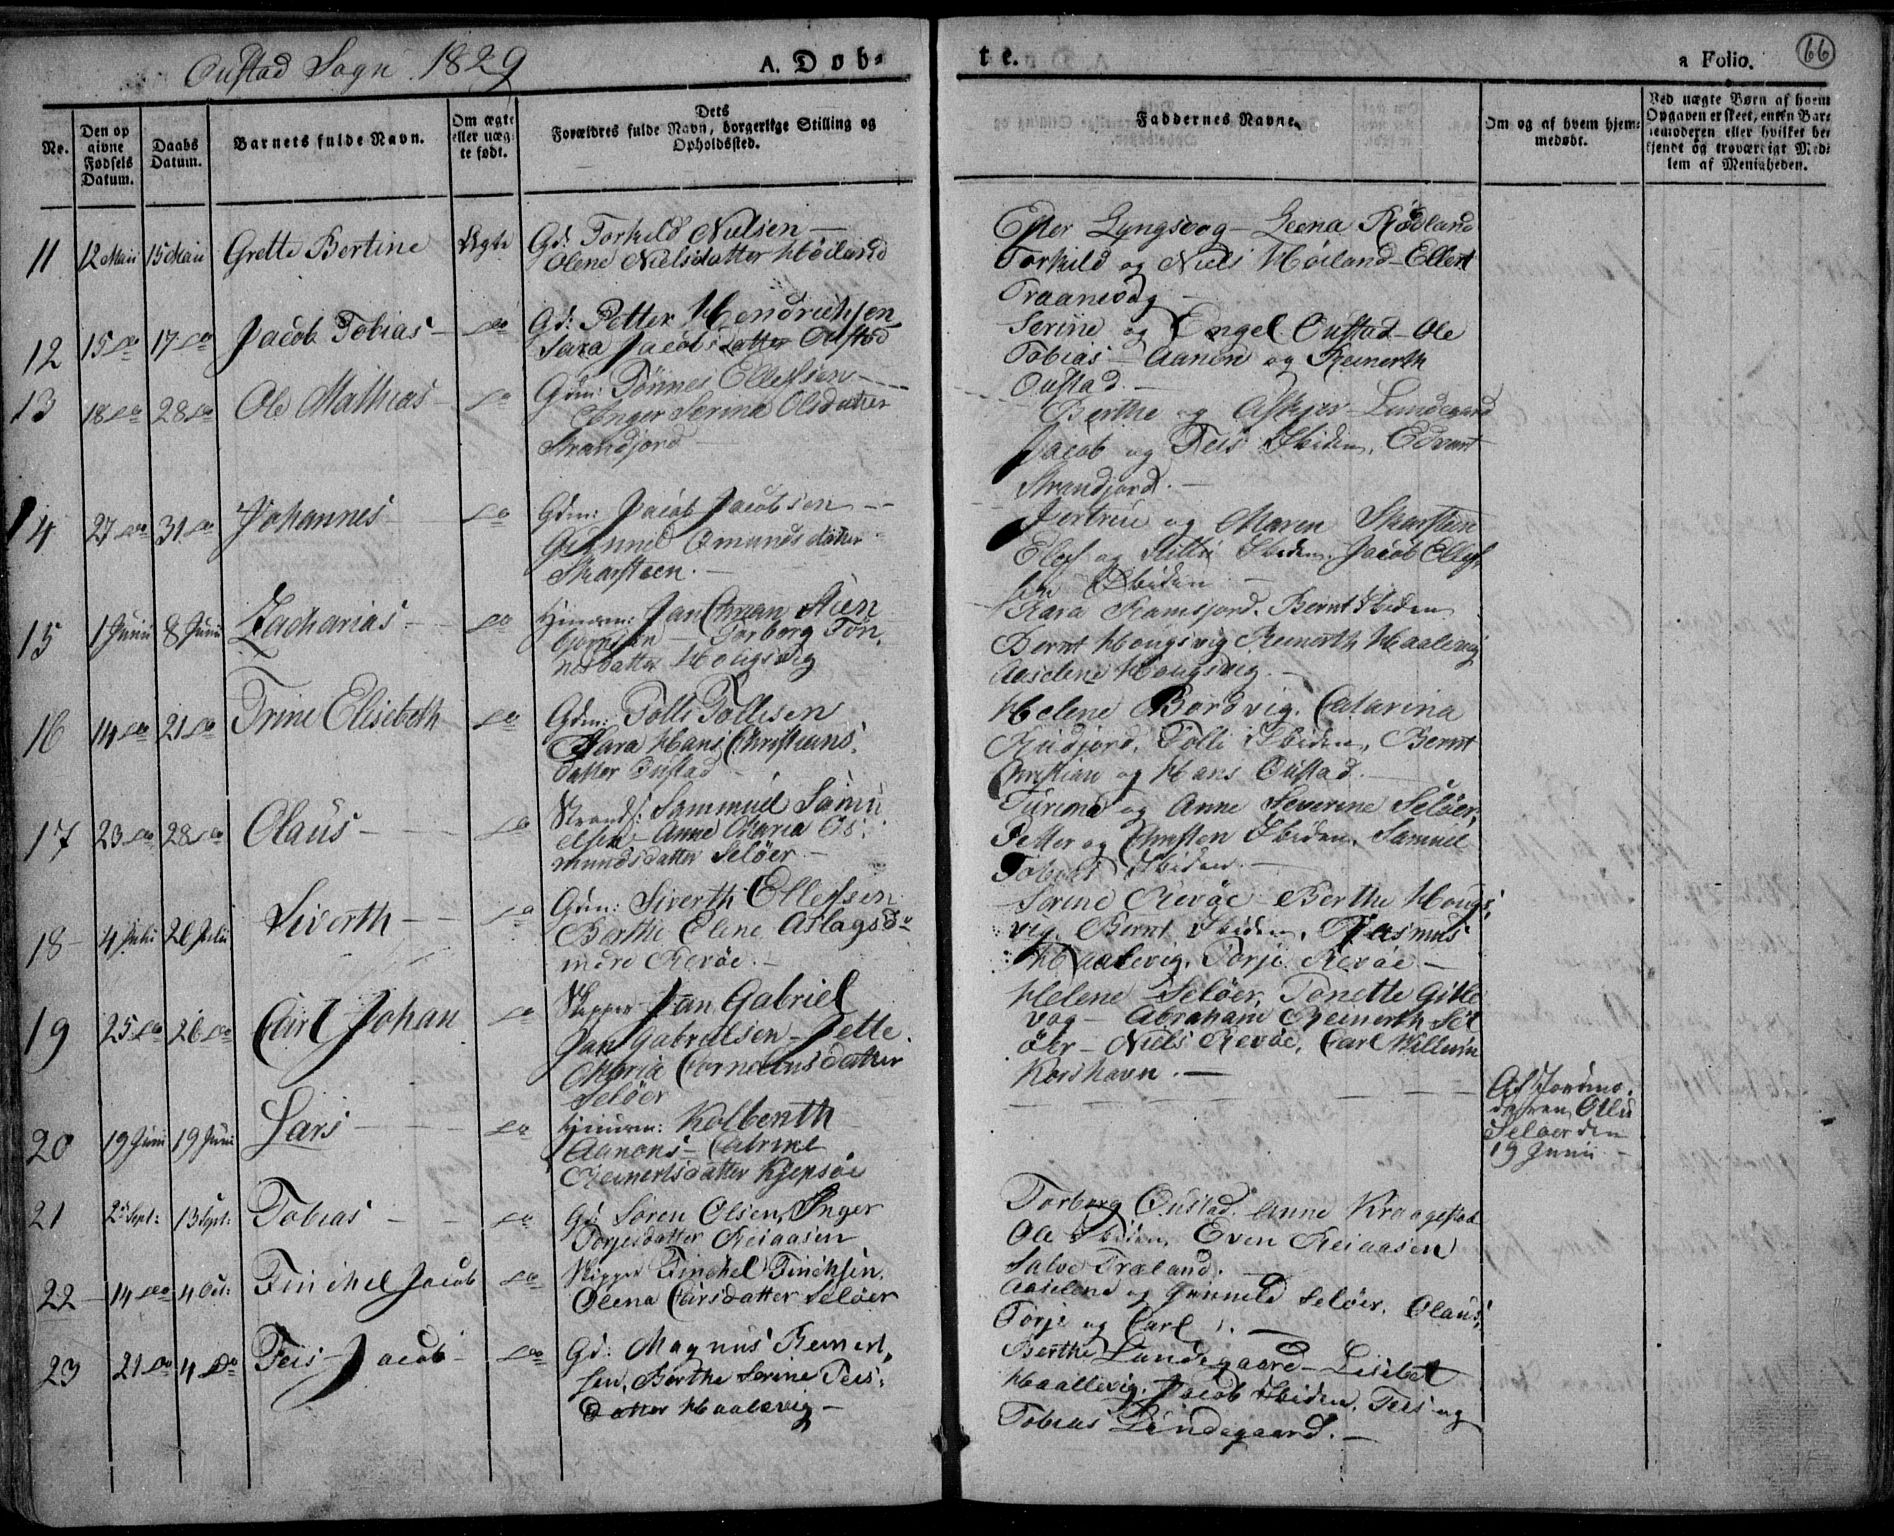 Oustad Sogn 1829
A. Døb-
te.
a Folio.
66
No.
Den op
givne
Fødsels
Datum.
Daabs
Datum.
Barnets fulde Navn.
Om ægte
eller uæg-
te født.
Dets
Forældres fulde Navn, borgerlige Stilling og
Opholdssted.
Faddernes Navne.
Om og af hvem hjem-
medøbt.
Ved uægte Børn af hvem
Opgaven er skeet, enten Bar-
nemoderen eller hvilket be-
kjendt og troværdigt Med-
lem af Menigheden.
11 12 Maii 15 Maii Grette Bertine Ægte
Gd: Torkild Nielsen —
Olene Nielsdatter Höiland
Ester Lyngsvog — Leena Rödland
Torkild og Niels Höiland — Ellert
Traanevog —
12 15 do 17 do Jacob Tobias — do
Gd: Petter Hendrichsen
Sara Jacobsdatter Oustad
Serine og Engel Oustad — Ole
Tobias — Aanon og Reinerth
Oustad. —
13 18 do 28 do Ole Mathias — do
Gdm: Tönnes Ellefsen —
Inger Serina Olsdatter
Strandjord —
Berthe og Askjer Lundegaard
Jacob og Teis Ibiden, Edvart
Strandjord. —
14 27 do 31 do Johannes — do
Gdm: Jacob Jacobsen —
Gunned Omundsdatter
Skarsteen. —
Jertrue og Maren Skarsteen
Ellef og Ibiden, Jacob Ellef-
sen Ibiden —
15 1 Junii 8 Junii Zacharias — do
Huusm: Jan Stien
björnsen — Torborg Tön-
nesdatter Hougsvig
Sara Ramsjord. Bernt Ibiden
Bernt Hougsvig Reinerth Haalevig
Aaselene Hougsvig. —
16 14 do 21 do Trine Elisebeth do
Gdm: Tolli Tollisen
Sara Hans Christians-
datter Oustad —
Helene Bordvig. Catarina
Tolli Ibiden, Bernt
Christian og Hans Oustad. —
17 23 do 28 do Olaus — do
Strands: Sammuel Samu
elsen — Anne Maria Os-
mundsdatter Selöer —
og Anne Severine Selöer,
Petter og Christen Ibiden. Samuel
Tobias Ibiden. —
18 4 Julii 26 Julii Siverth — do
Gdm: Siverth Ellefsen
Berthe Elene Aslagsd:
indre Revöe. —
Serine Revöe — Berthe Hougs-
vig. Bernt Ibiden, Rasmus
Haalevig. Torje Revöe —
19 25 do 26 do Carl Johan do
Skipper Jan Gabriel
Jan Gabrielsen — Jette
Maria Corneliusdatter
Selöer
Helene Selöer, Tonette Gitle
vog — Abraham Reinerth Sel
öer — Niels Revöe, Carl Willum
Korshavn. —
20 19 Junii 19 Junii Lars — do
Huusm: Kolbenth
Aanons — Catrine
Reinertsdatter Kjepsöe
Af Jordmo-
deren Olene
Selöer den
19 Junii —
21 2 Sept: 13 Sept: Tobias — do
Gd: Sören Olsen, Inger
Torjesdatter Reiaasen
Torborg Oustad. Anne Kraagestad
Ole Ibiden, Even Reiaasen
Salve Træland. —
22 14 do 4 Oct: Finckel Jacob do
Skipper Finckel Finchsen.
Olena Larsdatter Selöer
Aaselene og Gunnild Selöer. Olaus,
Torje og Carl —
23 21 do 4 do Teis Jacob — do
Gd: Magnus Reinert-
sen. Berthe Serine Teis-
datter Haalevig —
Berthe Lundegaard — Lisebet
Haallevig. Jacob Ibiden. Teis og
Tobias Lundegaard. —